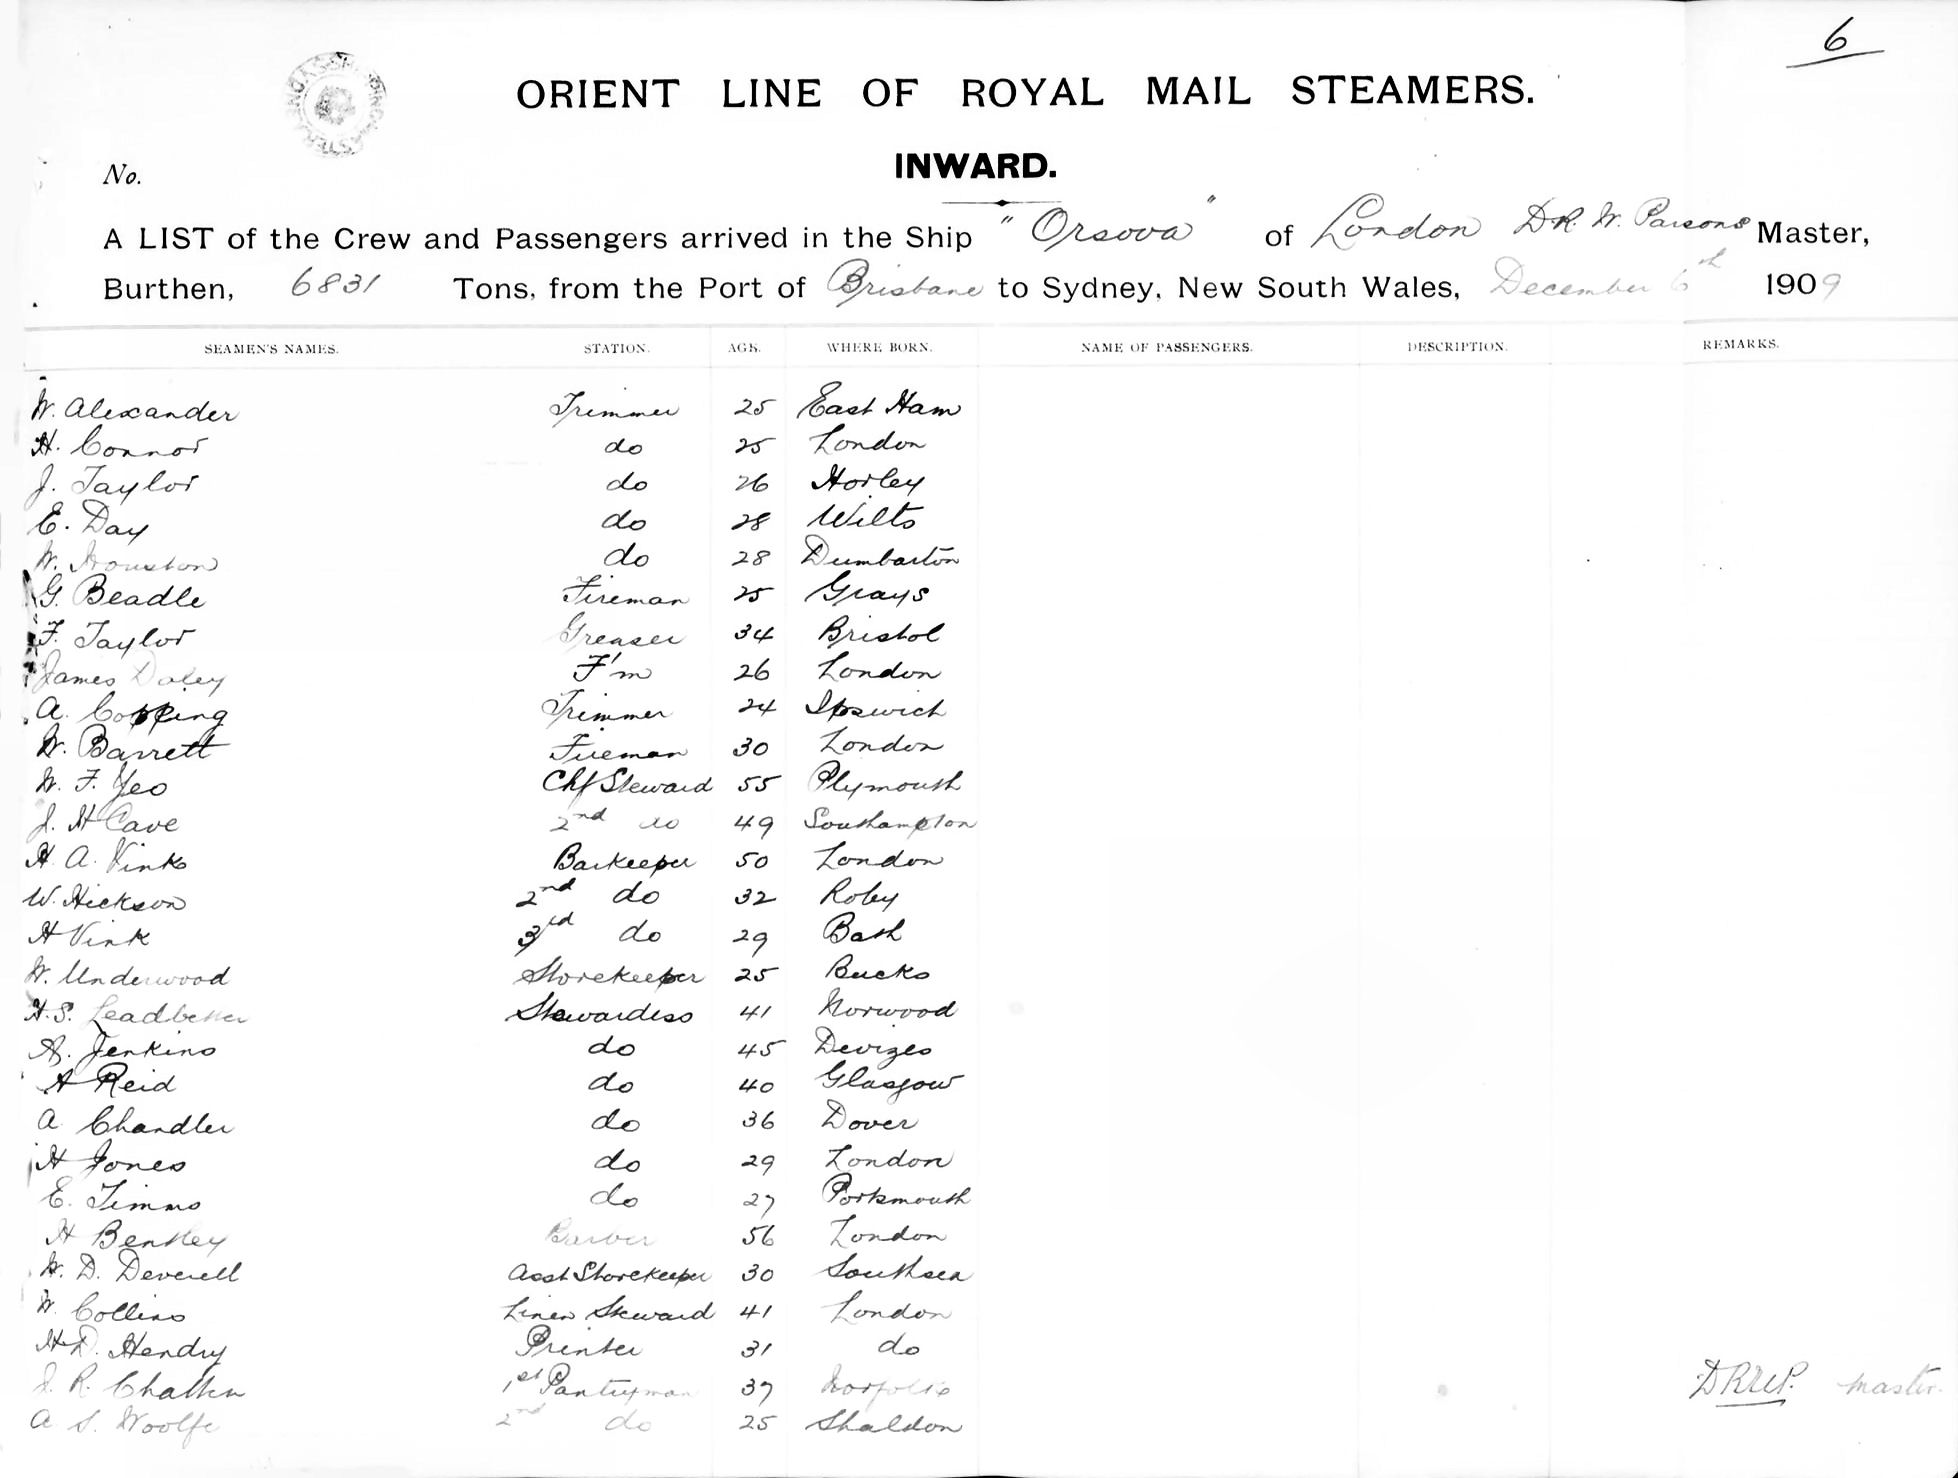 6
ORIENT LINE OF ROYAL MAIL STEAMERS.
INWARD.
No.
A LIST of the Crew and Passengers arrived in the Ship "Orsova" of London D.R. W. Parsons Master,
Burthen, 6831 Tons, from the Port of Brisbane to Sydney, New South Wales, December 6th 1909
SEAMEN'S NAMES. STATION. AGE. WHERE BORN. NAME OF PASSENGERS. DESCRIPTION. REMARKS.
W. Alexander Trimmer 25 East Ham
H. Connor do 25 London
J. Taylor do 26 Horley
E. Day do 28 Wilts
W. Houston do 28 Dumbarton
G. Beadle Fireman 25 Grays
F. Taylor Greaser 34 Bristol
James Daley F'm 26 London
A. Copping Trimmer 24 Ipswich
W. Barrett Fireman 30 London
W. F. Yeo Chf Steward 55 Plymouth
J. H Cave 2nd do 49 Southampton
H. A. Vink Barkeeper 50 London
W. Hickson 2nd do 32 Roby
H Vink 3rd do 29 Bath
W. Underwood Storekeeper 25 Bucks
H.S. Leadbetter Stewardess 41 Norwood
A. Jenkins do 45 Devizes
A Reid do 40 Glasgow
A Chandler do 36 Dover
H Jones do 29 London
E. Timms do 27 Portsmouth
H Bentley Barber 56 London
W. D. Deverell Asst Storekeeper 30 Southsea
W. Collins Linen Steward 41 London
H.D. Hendry Printer 31 do
J. R. 1st Pantryman 37 Norfolk
A S. Woolfe 2nd do 25 Shaldon
D.R.W.P. Master.